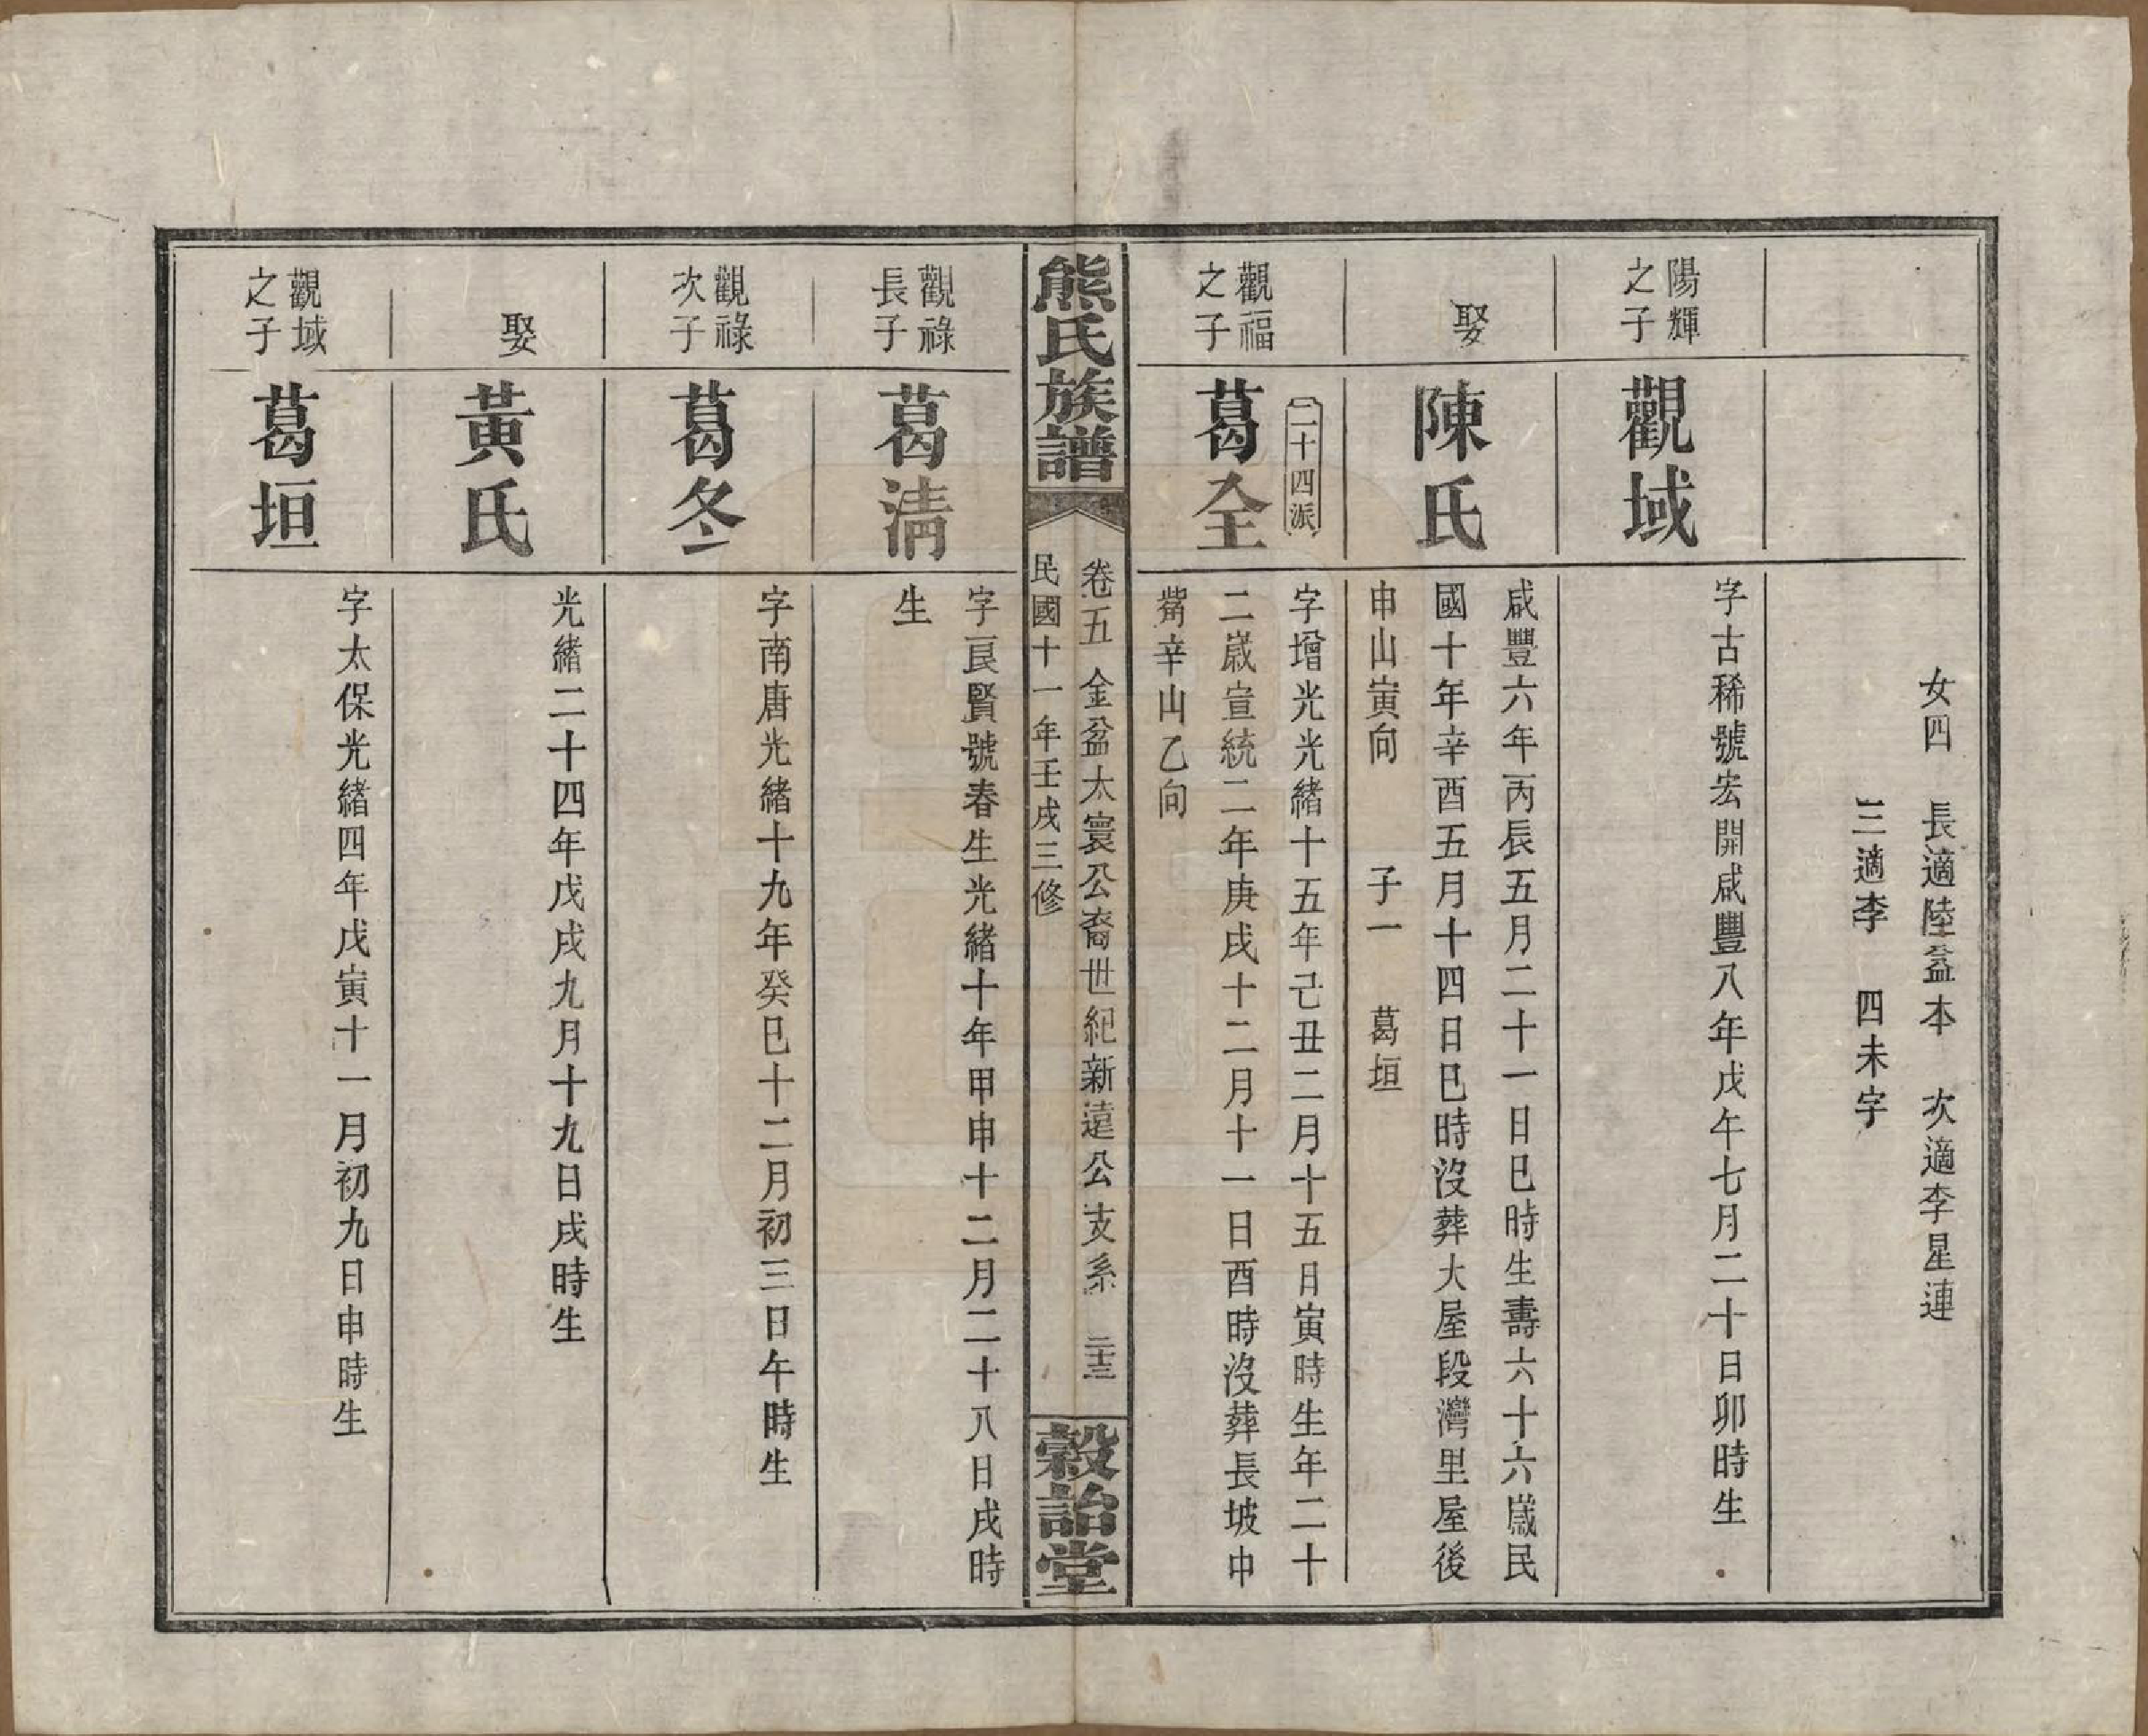 女四　長適陸益本　次適李星連
三適李　四未字
陽輝
之子
觀域
字古稀號宏開咸豐八年戊午七月二十日卯時生
娶
陳氏
咸豐六年丙辰五月二十一日巳時生壽六十六歲民
國十年辛酉五月十四日巳時沒葬大屋段灣里屋後
申山寅向　子一　葛垣
二十四派
觀福
之子
葛全
字增光光緒十五年己丑二月十五日寅時生年二十
二歲宣統二年庚戌十二月十一日酉時沒葬長坡中
觜辛山乙向
熊氏族譜
卷五　金盆太寰公裔世紀新遠公支系　二十三
民國十一年壬戌三修
穀詒堂
觀祿
長子
葛清
字良賢號春生光緒十年甲申十二月二十八日戌時
生
觀祿
次子
葛冬
字南唐光緒十九年癸巳十二月初三日午時生
娶
黃氏
光緒二十四年戊戌九月十九日戌時生
觀域
之子
葛垣
字太保光緒四年戊寅十一月初九日申時生